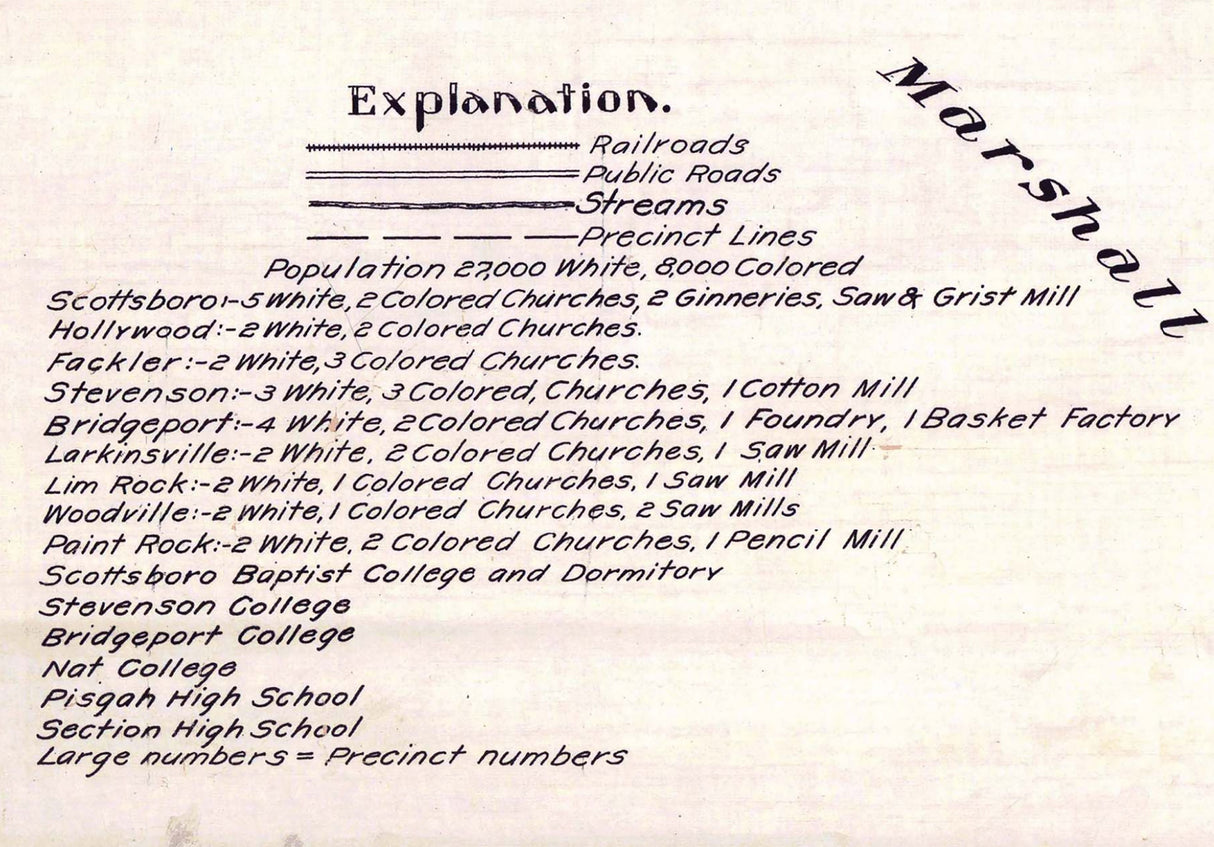 Explanation.
Railroads
Public Roads
Streams
Precinct Lines
Population 27,000 White, 8,000 Colored
Scottsboro:-5 White, 2 Colored Churches, 2 Ginneries, Saw & Grist Mill
Hollywood:-2 White, 2 Colored Churches.
Fackler:-2 White, 3 Colored Churches.
Stevenson:-3 White, 3 Colored, Churches, 1 Cotton Mill
Bridgeport:-4 White, 2 Colored Churches, 1 Foundry, 1 Basket Factory
Larkinsville:-2 White, 2 Colored Churches, 1 Saw Mill
Lim Rock:-2 White, 1 Colored Churches, 1 Saw Mill
Woodville:-2 White, 1 Colored Churches, 2 Saw Mills
Paint Rock:-2 White, 2 Colored Churches, 1 Pencil Mill
Scottsboro Baptist College and Dormitory
Stevenson College
Bridgeport College
Nat College
Pisgah High School
Section High School
Large numbers = Precinct numbers
Marshall